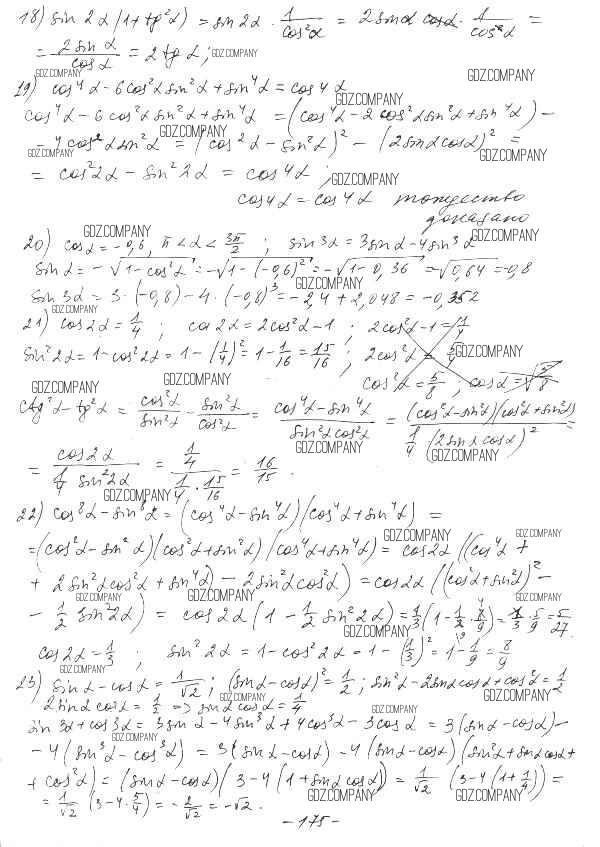 18) sin 2α (1 + tg²α) = sin 2α · 1/cos²α = 2 sin α cos α · 1/cos²α =
= 2 sin α/cos α = 2 tg α; GDZ.COMPANY
GDZ.COMPANY GDZ.COMPANY
19) cos⁴α - 6cos²α sin²α + sin⁴α = cos 4α
GDZ.COMPANY
cos⁴α - 6 cos²α sin²α + sin⁴α = (cos⁴α - 2 cos²α sin²α + sin⁴α) -
GDZ.COMPANY
- 4 cos²α sin²α = (cos²α - sin²α)² - (2 sinα cosα)² =
GDZ.COMPANY GDZ.COMPANY
= cos²2α - sin²2α = cos 4α;
GDZ.COMPANY
cos4α = cos 4α тождество
доказано
GDZ.COMPANY GDZ.COMPANY
20) cosα = -0,6, π < α < 3π/2; sin 3α = 3sinα - 4sin³α
sinα = -√1-cos²α = -√1-(-0,6)² = -√1-0,36 = -√0,64 = -0,8
GDZ.COMPANY
sin 3α = 3·(-0,8) - 4·(-0,8)³ = -2,4 + 2,048 = -0,352
GDZ.COMPANY
21) cos 2α = 1/4; cos 2α = 2cos²α - 1; 2cos²α - 1 = 1/4
sin²2α = 1 - cos²2α = 1 - (1/4)² = 1 - 1/16 = 15/16; 2cos²α = 5/4
GDZ.COMPANY
cos²α = 5/8; cosα = √5/8
GDZ.COMPANY GDZ.COMPANY
ctg²α - tg²α = cos²α/sin²α - sin²α/cos²α = cos⁴α - sin⁴α/sin²α cos²α = (cos²α - sin²α)(cos²α + sin²α)/1/4 (2 sinα cosα)² =
GDZ.COMPANY
= cos 2α/1/4 sin²2α = 1/4/1/4 · 15/16 = 16/15.
GDZ.COMPANY
22) cos⁸α - sin⁸α = (cos⁴α - sin⁴α)(cos⁴α + sin⁴α) =
GDZ.COMPANY GDZ.COMPANY
= (cos²α - sin²α)(cos²α + sin²α)(cos⁴α + sin⁴α) = cos 2α ((cos⁴α +
GDZ.COMPANY
+ 2 sin²α cos²α + sin⁴α) - 2 sin²α cos²α) = cos 2α ((cos²α + sin²α)² -
GDZ.COMPANY GDZ.COMPANY GDZ.COMPANY
- 1/2 sin²2α) = cos 2α (1 - 1/2 sin²2α) = 1/3 (1 - 1/2 · 8/9) = 1/3 · 5/9 = 5/27.
GDZ.COMPANY
cos 2α - 1/3; sin²2α = 1 - cos²2α = 1 - (1/3)² = 1 - 1/9 = 8/9
GDZ.COMPANY
23) sinα - cosα = 1/√2; (sinα - cosα)² = 1/2; sin²α - 2 sinα cosα + cos²α = 1/2
GDZ.COMPANY GDZ.COMPANY
2 sinα cosα = 1/2 => sinα cosα = 1/4
GDZ.COMPANY
sin 3α + cos 3α = 3 sinα - 4 sin³α + 4 cos³α - 3 cosα = 3 (sinα - cosα) -
GDZ.COMPANY
- 4 (sin³α - cos³α) = 3 (sinα - cosα) - 4 (sinα - cosα)(sin²α + sinα cosα +
GDZ.COMPANY
+ cos²α) = (sinα - cosα)(3 - 4 (1 + sinα cosα)) = 1/√2 (3 - 4 (1 + 1/4)) =
GDZ.COMPANY GDZ.COMPANY
= 1/√2 (3 - 4 · 5/4) = -2/√2 = -√2.
- 175 -